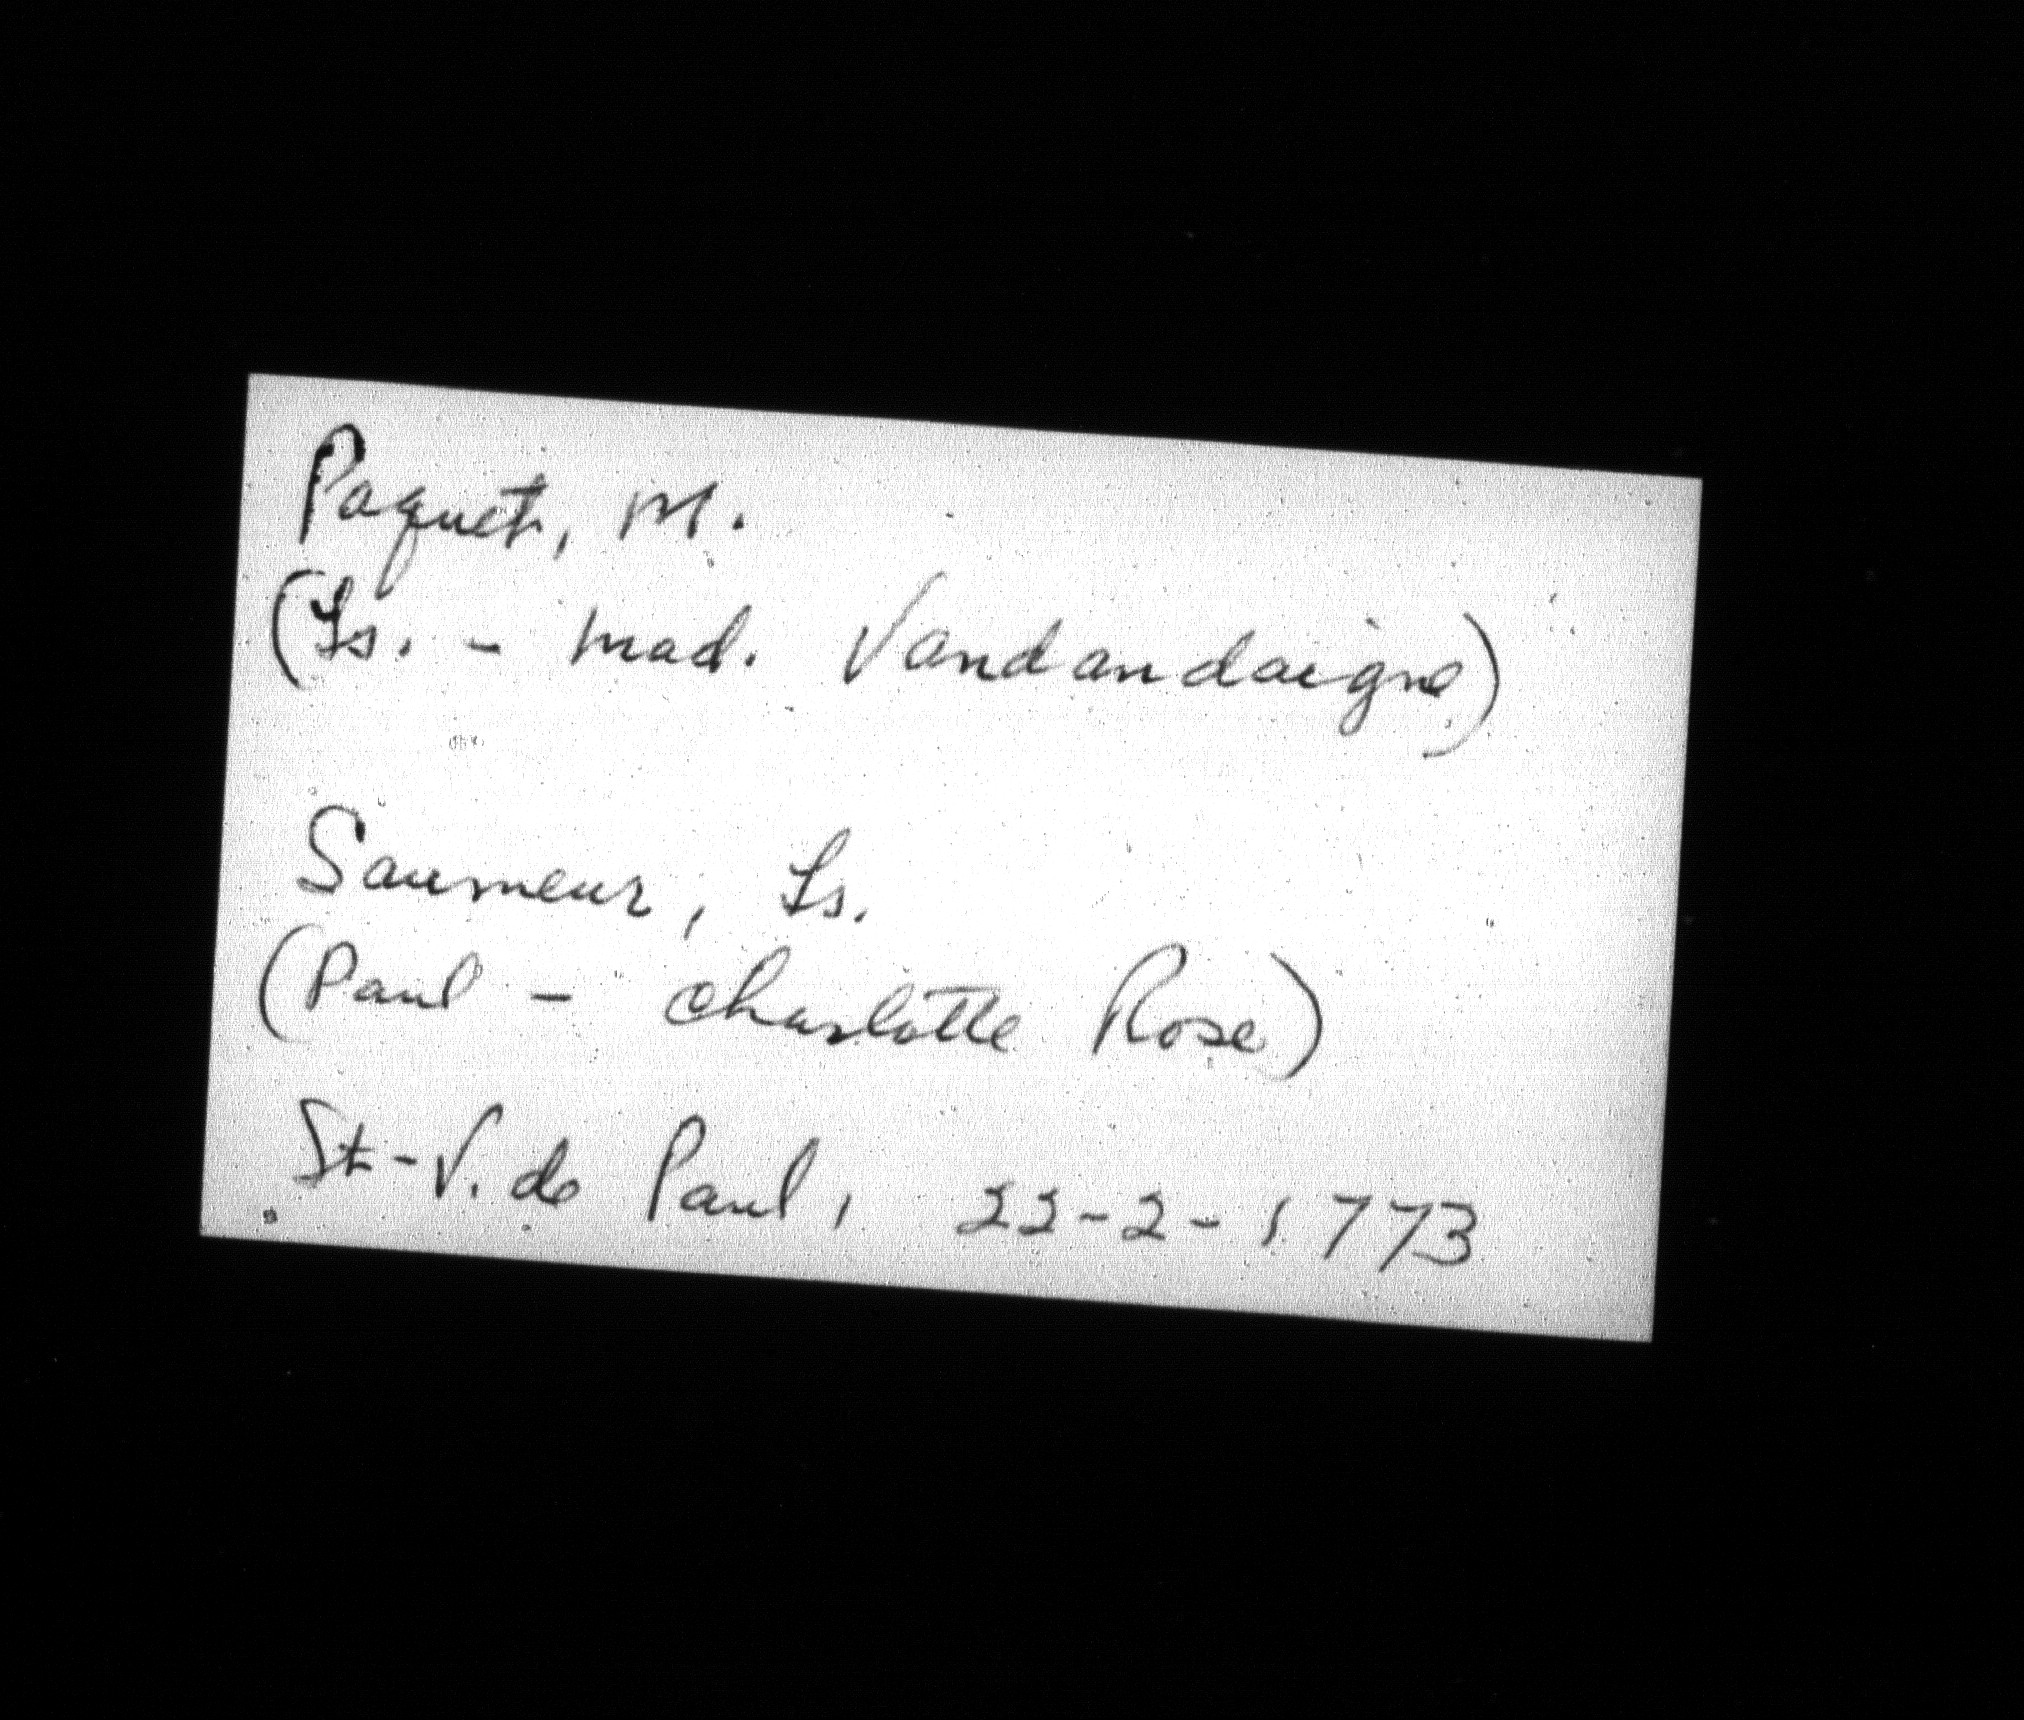 Paquet, M.
(Ls. - Mad. Vandandaigne)
Saumeur, Ls.
(Paul - Charlotte Rose)
St-V. de Paul, 22-2-1773